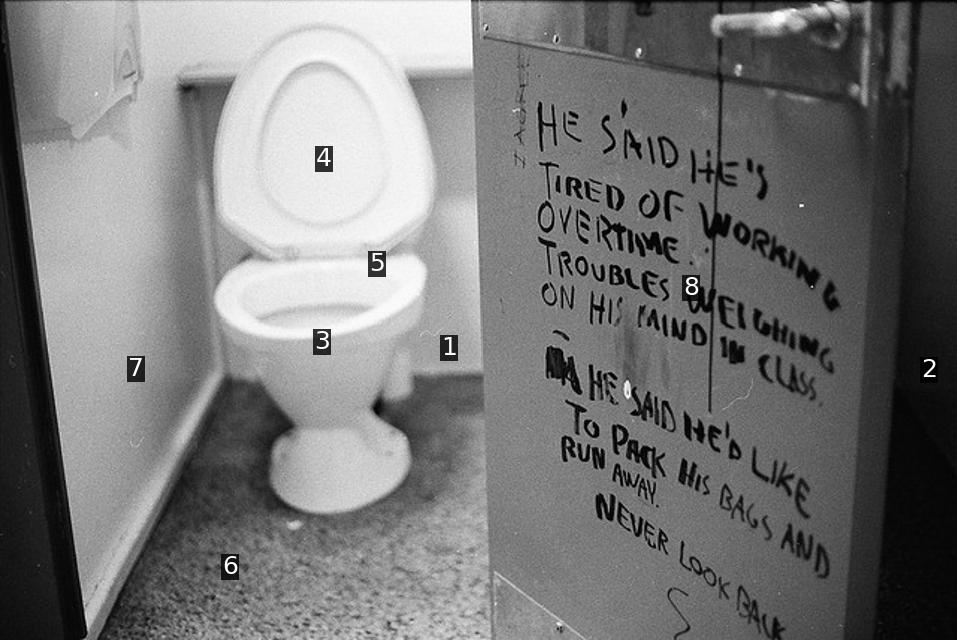 I AGREE
HE SAID HE'S
TIRED OF WORKING
OVERTIME.
TROUBLES WEIGHING
ON HIS MIND IN CLASS.
HE SAID HE'D LIKE
TO PACK HIS BAGS AND
RUN AWAY.
NEVER LOOK BACK
4
5
8
3
1
7
2
6